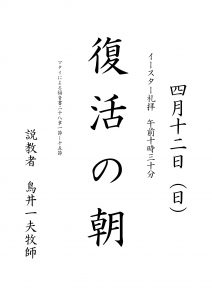 四月十二日（日）
イースター礼拝　午前十時三十分
復活の朝
マタイによる福音書二十八章一節～十五節
説教者　鳥井一夫牧師